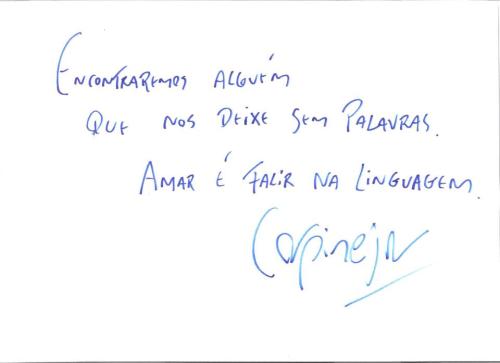 Encontraremos alguém
que nos deixe sem palavras.
Amar é falir na linguagem.
Carpinejar